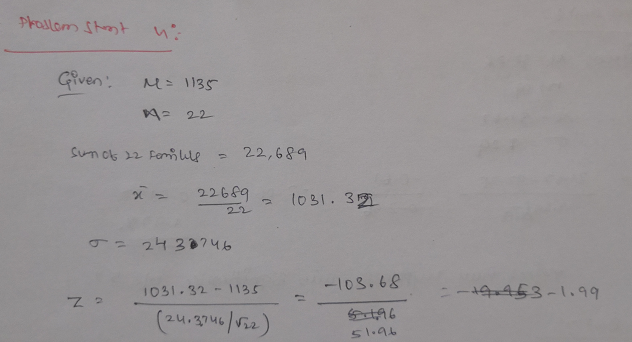 Problem Stmt 4:
Given: M = 1135
n = 22
Sum of 22 families = 22,689
x̄ = 22689/22 = 1031.32
σ = 2430746
Z = 1031.32 - 1135 / (24.3746/√22) = -103.68 / 51.96 = -1.99